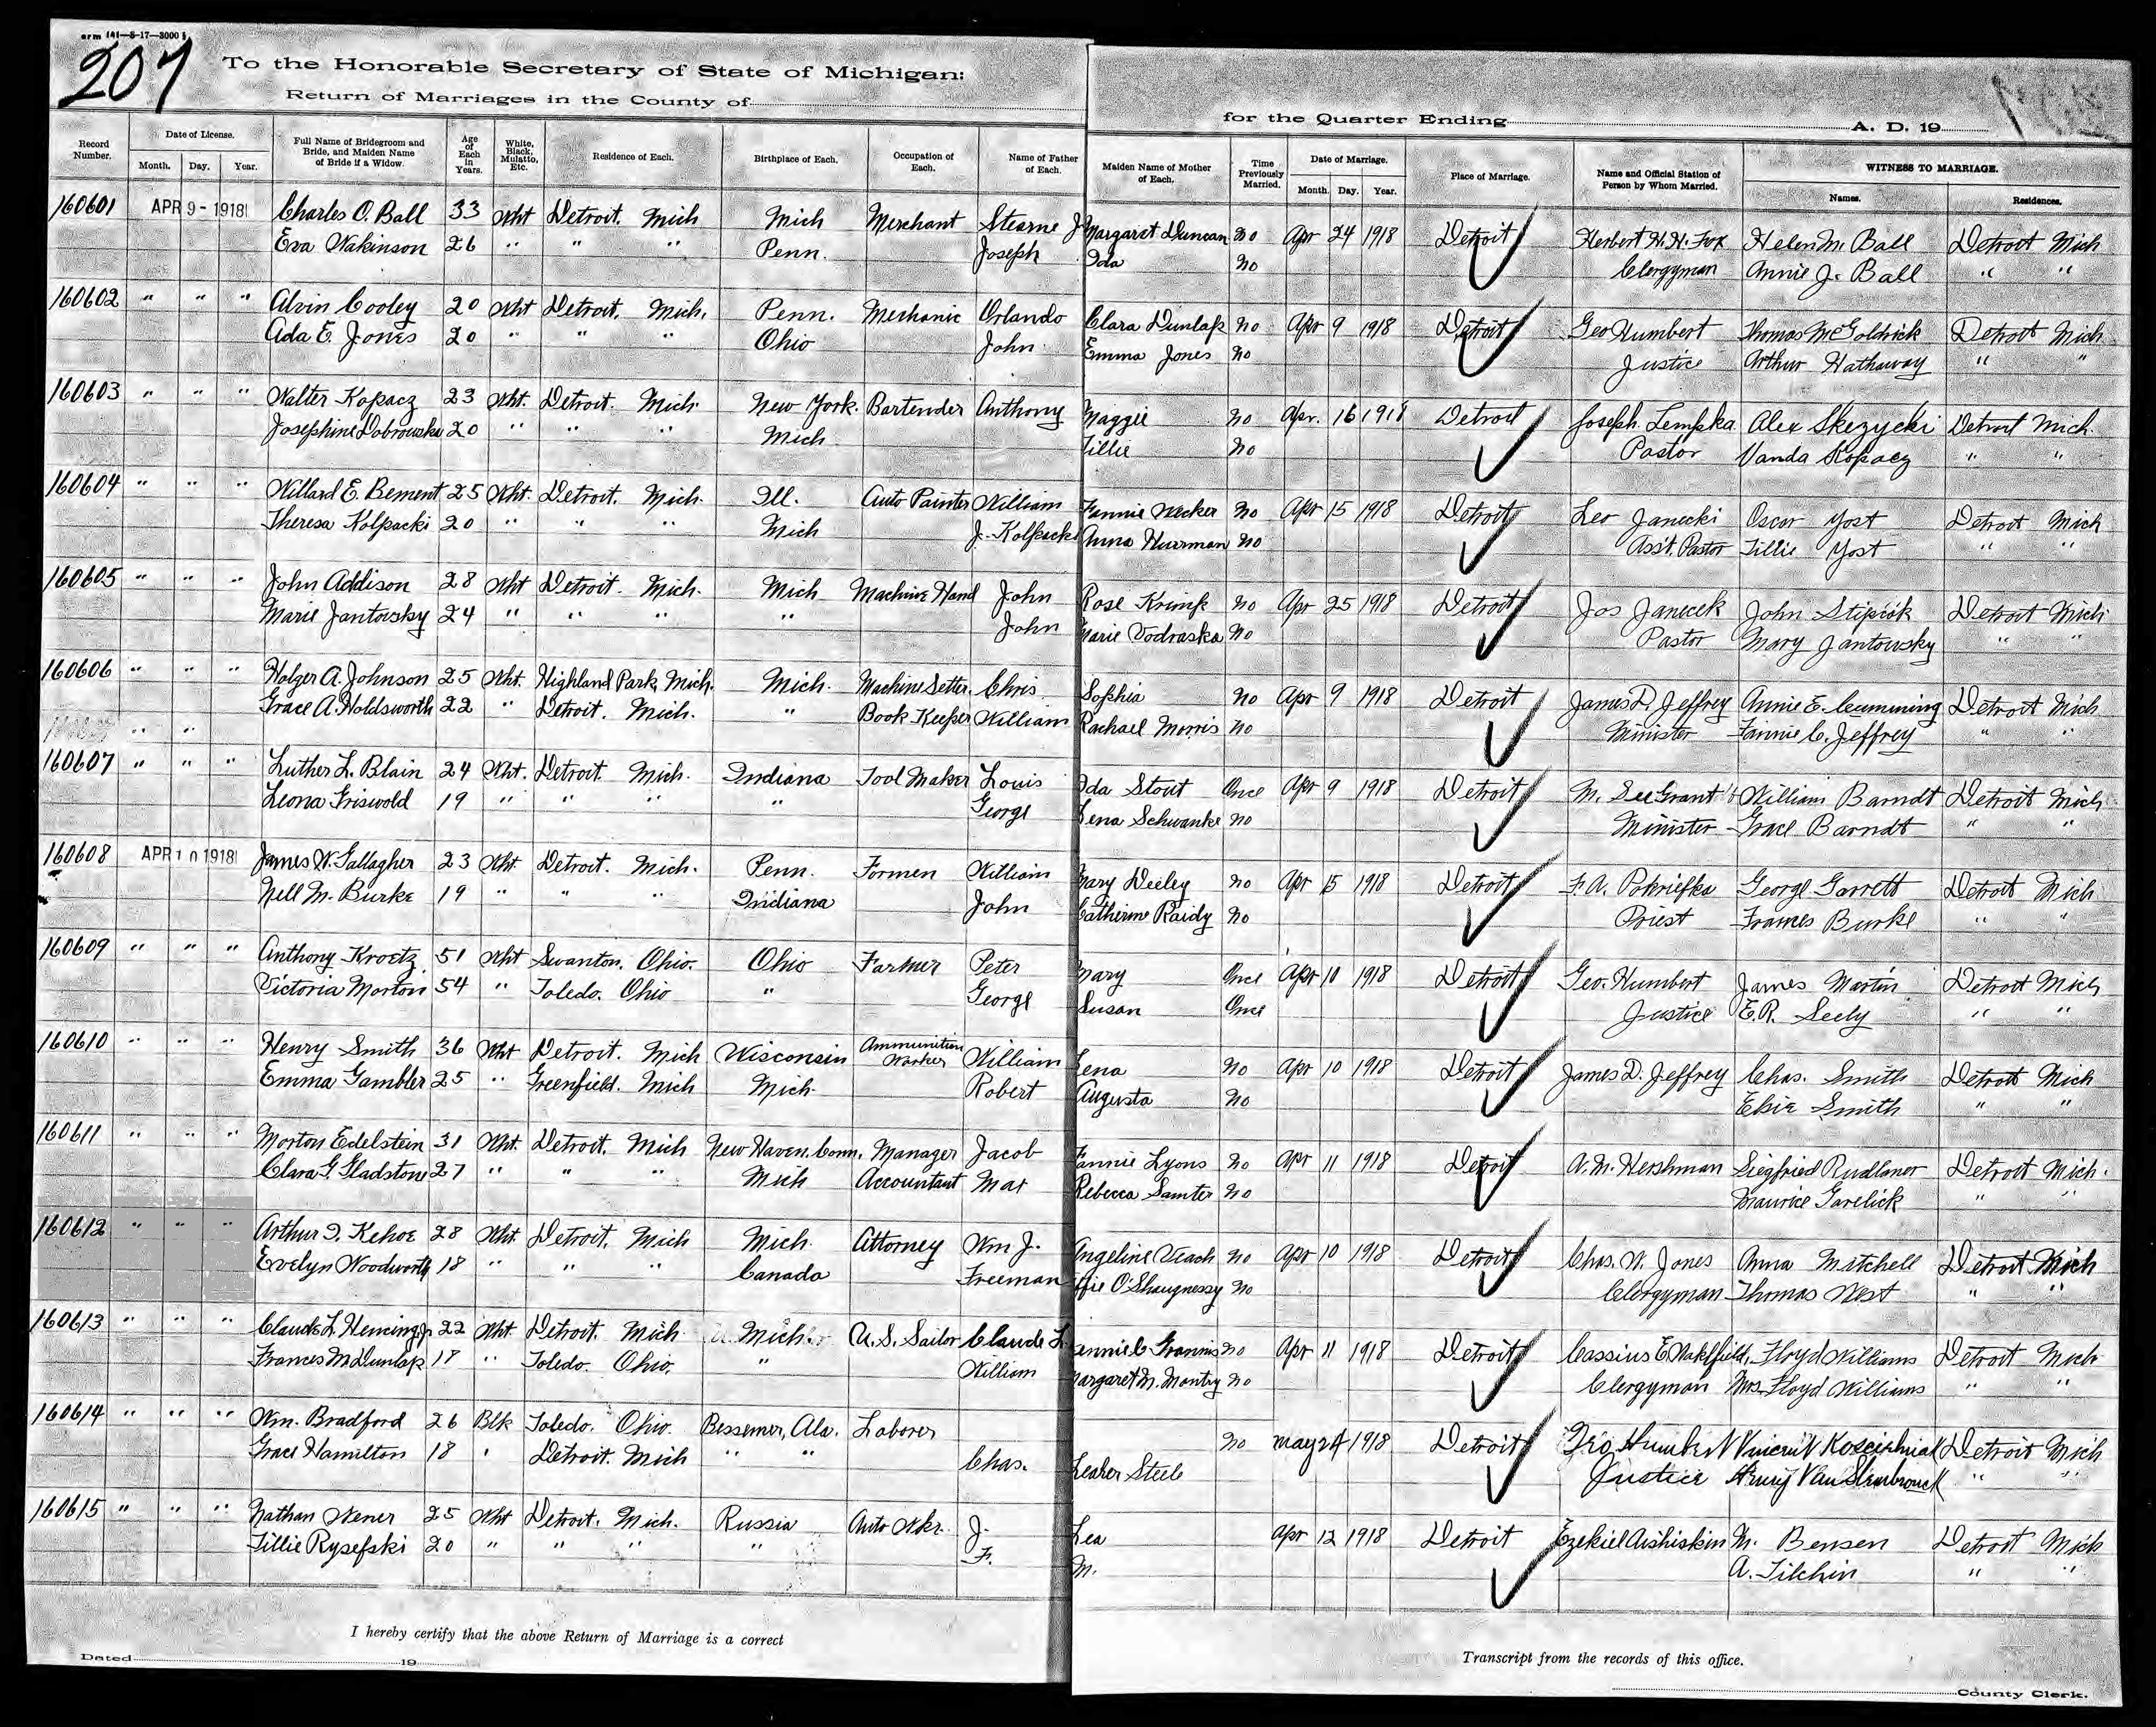 Form 141—8-17—3000
207
To the Honorable Secretary of State of Michigan:
Return of Marriages in the County of
for the Quarter Ending A. D. 19
Record Number. Date of License. Month. Day. Year. Full Name of Bridegroom and Bride, and Maiden Name of Bride if a Widow. Age of Each in Years. White, Black, Mulatto, Etc. Residence of Each. Birthplace of Each. Occupation of Each. Name of Father of Each. Maiden Name of Mother of Each. Time Previously Married. Date of Marriage. Month. Day. Year. Place of Marriage. Name and Official Station of Person by Whom Married. WITNESS TO MARRIAGE. Names. Residences.
160601 APR 9 - 1918 Charles O. Ball 33 Wht Detroit. Mich Mich Merchant Stearne J Margaret Duncan No Apr 24 1918 Detroit Herbert H. H. Fox Helen M. Ball Detroit Mich
Eva Wakinson 26 " " " Penn. Joseph Ida No Clergyman Annie J. Ball " "
160602 " " " Alvin Cooley 20 Wht Detroit. Mich. Penn. Mechanic Orlando Clara Dunlap No Apr 9 1918 Detroit Geo Humbert Thomas McGoldrick Detroit Mich
Ada E. Jones 20 " " " Ohio John Emma Jones No Justice Arthur Hathaway " "
160603 " " " Walter Kopacz 23 Wht. Detroit. Mich. New York. Bartender Anthony Maggie No Apr. 16 1918 Detroit Joseph Lempka Alex Skezycki Detroit Mich.
Josephine Dobrowska 20 " " " Mich. Tillie No Pastor Vanda Kopacz " "
160604 " " " Willard E. Bement 25 Wht. Detroit. Mich. Ill. Auto Painter William Fannie Wecker No Apr 15 1918 Detroit Leo Janecki Oscar Yost Detroit Mich
Theresa Kolpacki 20 " " " Mich J. Kolpacki Anna Hurrman No Ass't. Pastor Tillie Yost " "
160605 " " " John Addison 28 Wht Detroit. Mich. Mich Machine Hand John Rose Krimp No Apr 25 1918 Detroit Jos Janecek John Stipcok Detroit Mich
Marie Jantovsky 24 " " " " John Marie Vodraska No Pastor Mary Jantovsky " "
160606 " " " Holger A. Johnson 25 Wht. Highland Park, Mich. Mich. Machine Setter. Chris. Sophia No Apr 9 1918 Detroit James D. Jeffrey Annie E. Cumming Detroit Mich
Grace A. Holdsworth 22 " Detroit. Mich. " Book Keeper William Rachael Morris No Minister Fannie C. Jeffrey " "
160607 " " " Luther L. Blain 24 Wht. Detroit. Mich. Indiana Tool Maker Louis Ida Stout Once Apr 9 1918 Detroit M. See Grant William Barndt Detroit Mich
Leona Griswold 19 " " " " George Lena Schwanke No Minister Grace Barndt " "
160608 APR 10 1918 James W. Gallagher 23 Wht. Detroit. Mich. Penn. Formen William Mary Deeley No Apr 15 1918 Detroit F. A. Pokriefka George Garrett Detroit Mich
Nell M. Burke 19 " " " Indiana John Catherine Raidy No Priest Frames Burke " "
160609 " " " Anthony Kroetz 51 Wht Swanton. Ohio. Ohio Farmer Peter Mary Once Apr 10 1918 Detroit Geo. Humbert James Martin Detroit Mich
Victoria Morton 54 " Toledo. Ohio " George Susan Once Justice E. R. Seely " "
160610 " " " Henry Smith 36 Wht Detroit. Mich Wisconsin Ammunition Worker William Lena No Apr 10 1918 Detroit James D. Jeffrey Chas. Smith Detroit Mich
Emma Gambler 25 " Greenfield. Mich Mich. Robert Augusta No Elsie Smith " "
160611 " " " Morton Edelstein 31 Wht. Detroit. Mich New Haven, Conn. Manager Jacob Fannie Lyons No Apr 11 1918 Detroit A. M. Hershman Siegfried Rudlaner Detroit Mich.
Clara G. Gladstone 27 " " " Mich Accountant Max Rebecca Samter No Maurice Garelick " "
160612 " " " Arthur I. Kehoe 28 Wht. Detroit. Mich Mich. Attorney Wm J. Angeline Veach No Apr 10 1918 Detroit Chas. W. Jones Anna Mitchell Detroit Mich
Evelyn Woodworth 18 " " " Canada Freeman Effie O'Shaugnessy No Clergyman Thomas West " "
160613 " " " Claude L. Fleming Jr 22 Wht Detroit. Mich Mich. U. S. Sailor Claude L. Fannie C Grannis No Apr 11 1918 Detroit Cassius E Wakefield, Floyd Williams Detroit Mich
Frances M Dunlap 18 " Toledo. Ohio. " William Margaret M. Montry No Clergyman Mrs Floyd Williams " "
160614 " " " Wm. Bradford 26 Blk Toledo. Ohio. Bessemer, Ala. Laborer No May 24 1918 Detroit Geo Humbert Vincent Kosciehnial Detroit Mich
Grace Hamilton 18 " Detroit. Mich " " Chas. Leaher Steele Justice Henry Van Steinbrouck " "
160615 " " " Nathan Wener 25 Wht Detroit. Mich. Russia Auto Wkr. J. Lea Apr 12 1918 Detroit Ezekiel Aishiskin M. Bensen Detroit Mich
Tillie Rysefski 20 " " " " F. M. A. Tilchin " "
I hereby certify that the above Return of Marriage is a correct
Transcript from the records of this office.
Dated 19
County Clerk.